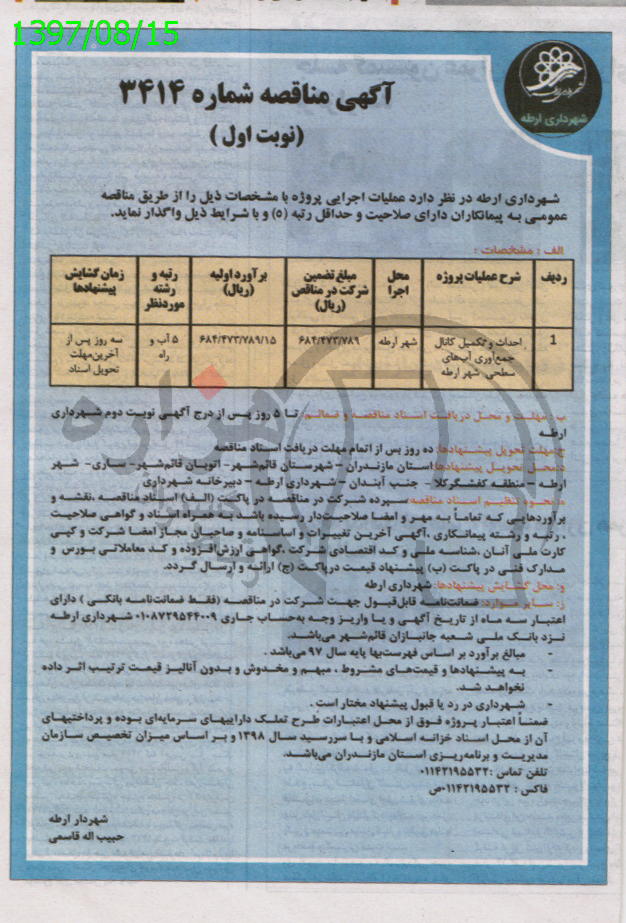 1397/08/15
شهرداری ارطه
آگهی مناقصه شماره ۳۴۱۴
(نوبت اول)
شهرداری ارطه در نظر دارد عملیات اجرایی پروژه با مشخصات ذیل را از طریق مناقصه
عمومی به پیمانکاران دارای صلاحیت و حداقل رتبه (۵) و با شرایط ذیل واگذار نماید.
الف : مشخصات :
ردیف
شرح عملیات پروژه
محل اجرا
مبلغ تضمین شرکت در مناقص (ریال)
برآورد اولیه (ریال)
رتبه و رشته موردنظر
زمان گشایش پیشنهادها
1
احداث و تکمیل کانال جمع‌آوری آب‌های سطحی شهر ارطه
شهر ارطه
۶۸۴/۴۷۳/۷۸۹
۶۸۴/۴۷۳/۷۸۹/۱۵
۵ آب و راه
سه روز پس از آخرین مهلت تحویل اسناد
ب: مهلت و محل دریافت اسناد مناقصه و ضمائم: تا ۵ روز پس از درج آگهی نوبت دوم شهرداری
ارطه
ج:مهلت تحویل پیشنهادها: ده روز پس از اتمام مهلت دریافت اسناد مناقصه
د:محل تحویل پیشنهادها:استان مازندران – شهرستان قائم‌شهر- اتوبان قائم‌شهر- ساری- شهر
ارطه – منطقه کفشگرکلا – جنب آبندان – شهرداری ارطه – دبیرخانه شهرداری
ه:نحوه تنظیم اسناد مناقصه:سپرده شرکت در مناقصه در پاکت (الف) اسناد مناقصه ،نقشه و
برآوردهایی که تماماً به مهر و امضا صلاحیت‌دار رسیده باشد به همراه اسناد و گواهی صلاحیت
، رتبه و رشته پیمانکاری ،آگهی آخرین تغییرات و اساسنامه و صاحبان مجاز امضا شرکت و کپی
کارت ملی آنان ،شناسه ملی و کد اقتصادی شرکت ،گواهی ارزش‌افزوده و کد معاملاتی بورس و
مدارک فنی در پاکت (ب) پیشنهاد قیمت درپاکت (ج) ارائه و ارسال گردد.
و:محل گشایش پیشنهادها: شهرداری ارطه
ز: سایر موارد: ضمانت‌نامه قابل‌قبول جهت شرکت در مناقصه (فقط ضمانت‌نامه بانکی ) دارای
اعتبار سه ماه از تاریخ آگهی و یا واریز وجه به‌حساب جاری ۰۱۰۸۷۲۹۵۴۴۰۰۹ شهرداری ارطه
نزد بانک ملی شعبه جانبازان قائم‌شهر می‌باشد.
- مبالغ برآورد بر اساس فهرست‌بها پایه سال ۹۷ می‌باشد .
- به پیشنهادها و قیمت‌های مشروط ، مبهم و مخدوش و بدون آنالیز قیمت ترتیب اثر داده
نخواهد شد.
- شهرداری در رد یا قبول پیشنهاد مختار است .
ضمناً اعتبار پروژه فوق از محل اعتبارات طرح تملک داراییهای سرمایه‌ای بوده و پرداختیهای
آن از محل اسناد خزانه اسلامی و با سررسید سال ۱۳۹۸ و بر اساس میزان تخصیص سازمان
مدیریت و برنامه‌ریزی استان مازندران می‌باشد.
تلفن تماس :۰۱۱۴۲۱۹۵۵۳۲
فاکس : ۰۱۱۴۲۱۹۵۵۳۲ص
شهردار ارطه
حبیب اله قاسمی
هزاره